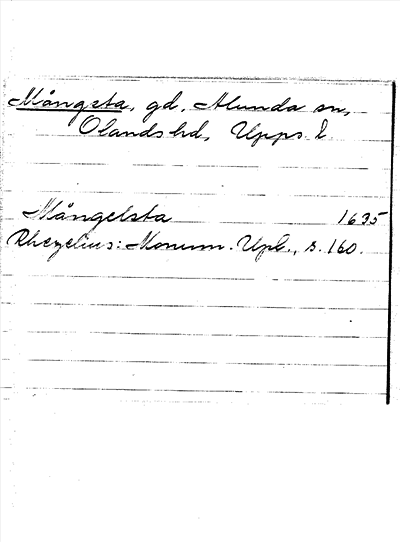 Mångsta, gd, Alunda sn,
Olands hd, Upps. l.
Mångelsta 1635
Rhezelius: Monum. Upl., s. 160.